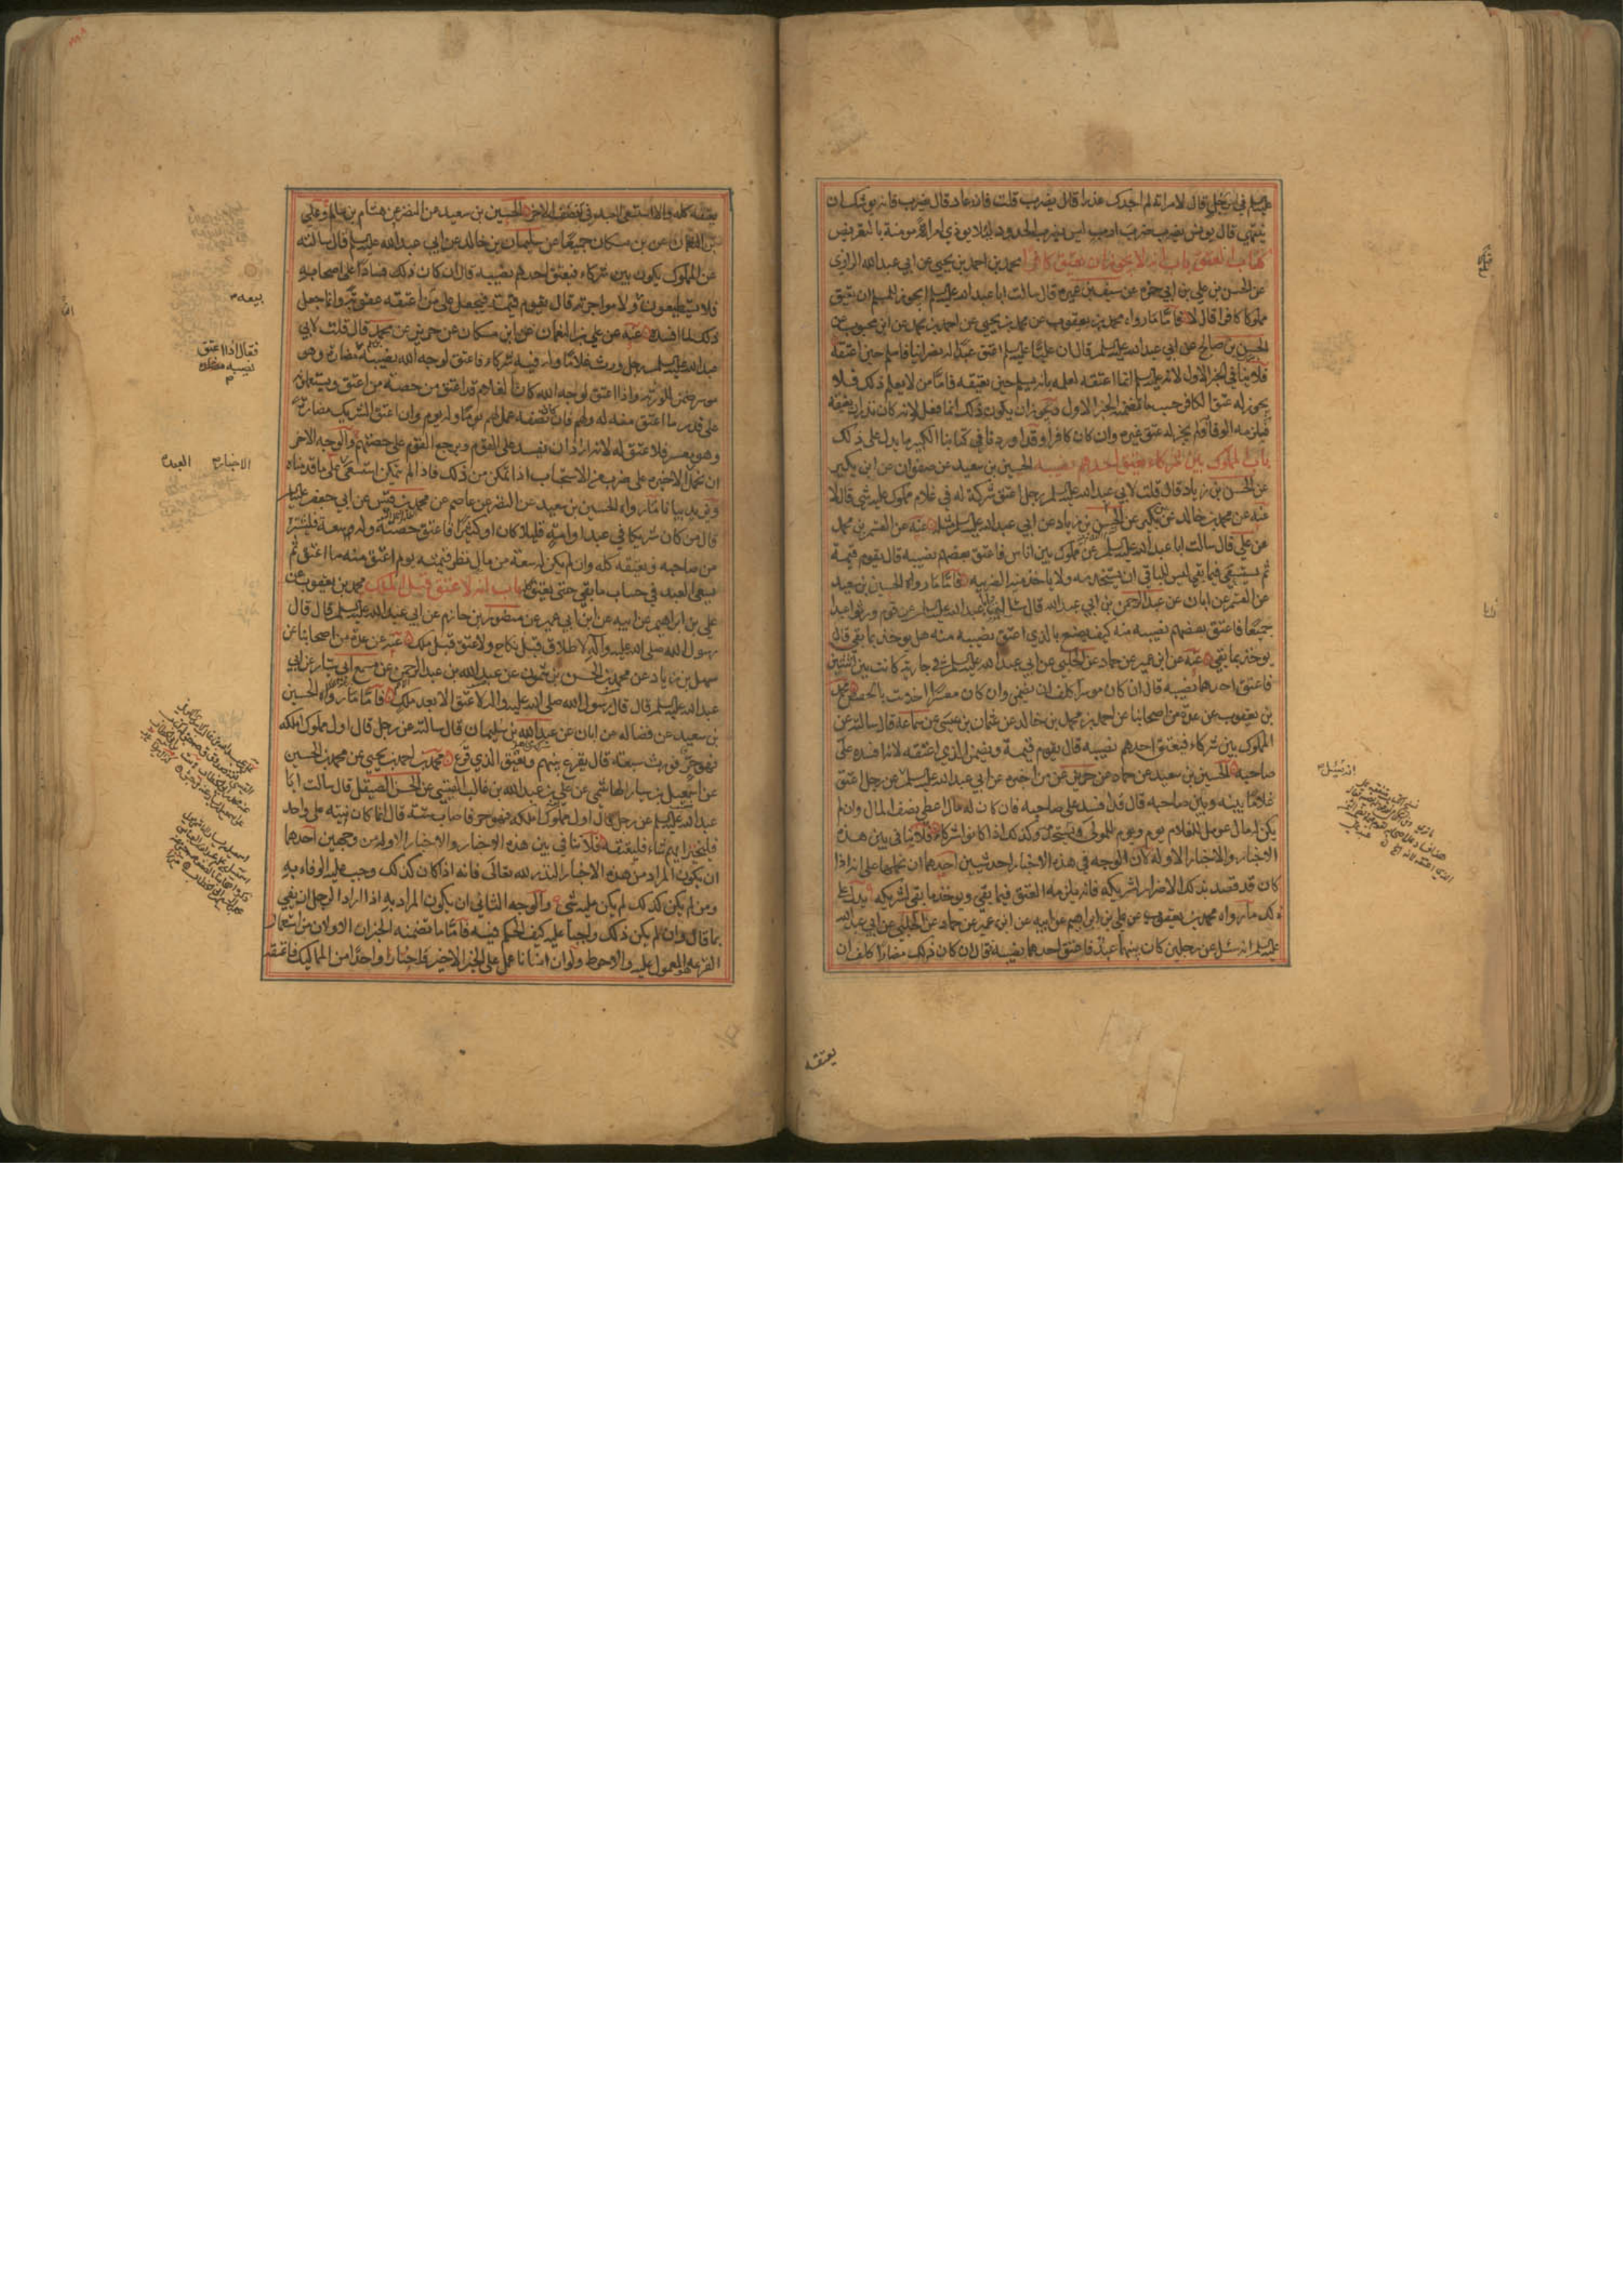 عليه السلم في رجل قال لامراته لم اجدك عذراء قال يضرب قلت فانه عاد قال يضرب فانه يوشك ان
ينتهي قال يونس يضرب ضرب ادب ليس يضرب الحدود لئلا يوذي امراة مومنة بالتعريض
كتاب العتق باب انه لا يجوز ان يعتق كافرا محمد بن احمد بن يحيى عن ابي عبد الله الرازي
عن الحسن بن علي بن ابي حمزه عن سيف بن عميره قال سالت ابا عبد الله عليه السلم ايجوز للمسلم ان يعتق
مملوكا كافرا قال لا فاما ما رواه محمد بن يعقوب عن محمد بن يحيى عن احمد بن محمد عن ابن محبوب عن
الحسن بن صالح عن ابي عبد الله عليه السلم قال ان عليا عليه السلم اعتق عبدا له نصرانيا فاسلم حين اعتقه
فلا ينافي الخبر الاول لانه عليه السلم انما اعتقه لعلمه بانه يسلم حين يعتقه فاما من لا يعلم ذلك فلا
يجوز له عتق الكافر حسب ما تضمنه الخبر الاول ويجوز ان يكون ذلك انما فعل لانه كان نذر ان يعتقه
فيلزمه الوفاء ولم يجز له عتق غيره وان كان كافرا وقد اوردنا في كتابنا الكبير ما يدل على ذلك
باب المملوك بين شركاء يعتق احدهم نصيبه الحسين بن سعيد عن صفوان عن ابن بكير
عن الحسن بن زياد قال قلت لابي عبد الله عليه السلم رجل اعتق شركة له في غلام مملوك عليه شي قال لا
عنه عن محمد بن خالد عن ابن بكير عن الحسن بن زياد عن ابي عبد الله عليه السلم مثله عنه عن القسم بن محمد
عن علي قال سالت ابا عبد الله عليه السلم عن مملوك بين اناس فاعتق بعضهم نصيبه قال يقوم قيمة
ثم يستسعى فيما بقي ليس للباقي ان يستخدمه ولا ياخذ منه الضريبه فاما ما رواه الحسين بن سعيد
عن القسم عن ابان عن عبد الرحمن بن ابي عبد الله قال سالت ابا عبد الله عليه السلم عن قوم ورثوا عبدا
جميعا فاعتق بعضهم نصيبه منه كيف يصنع بالذي اعتق نصيبه منه هل يوخذ بما بقي قال
يوخذ بما بقي عنه عن ابن ابي عمير عن حماد عن الحلبي عن ابي عبد الله عليه السلم في جارية كانت بين اثنين
فاعتق احدهما نصيبه قال ان كان موسرا كلف ان يضمن وان كان معسرا اخدمت بالحصص محمد
بن يعقوب عن عدة من اصحابنا عن احمد بن محمد بن خالد عن عثمان بن عيسى عن سماعة قال سالته عن
المملوك بين شركاء فيعتق احدهم نصيبه قال يقوم قيمة ويضمن الذي اعتقه لانه افسده على
صاحبه الحسين بن سعيد عن حماد عن حريز عمن اخبره عن ابي عبد الله عليه السلم عن رجل اعتق
غلاما بينه وبين صاحبه قال قد افسد على صاحبه فان كان له مال اعطى نصف المال وان لم
يكن له مال عومل الغلام يوم ويوم للمولى ويستخدمه وكذلك اذا كانوا شركاء فلا تنافي بين هذه
الاخبار والاخبار الاوله لان الوجه في هذه الاخبار احد شيئين احدهما ان نحملها على انه اذا
كان قد قصد بذلك الاضرار لشريكه فانه يلزمه العتق فيما بقي ويوخذ بما بقي لشريكه يدل على
ذلك ما رواه محمد بن يعقوب عن علي بن ابراهيم عن ابيه عن ابن ابي عمير عن حماد عن الحلبي عن ابي عبد الله
عليه السلم انه سئل عن رجلين كان بينهما عبد فاعتق احدهما نصيبه فقال ان كان ذلك مضارا كلف ان
يعتقه
يعتقه كله والا استسعى العبد في النصف الاخر الحسين بن سعيد عن النضر عن هشام بن سالم وعلي
بن النعمان عن ابن مسكان جميعا عن سليمان بن خالد عن ابي عبد الله عليه السلم قال سالته
عن المملوك يكون بين شركاء فيعتق احدهم نصيبه قال ان كان ذلك فسادا على اصحابه
فلا يستطيعون ولا مواجرته قال يقوم قيمة فيجعل على من اعتقه عقوبة وانما جعل
ذلك لما افسده عنه عن علي بن النعمان عن ابن مسكان عن حريز عن محمد قال قلت لابي
عبد الله عليه السلم رجل ورث غلاما وله فيه شركاء فاعتق لوجه الله نصيبه مضارة وهو
موسر ضمن للورثه واذا اعتق لوجه الله كان الغلام قد اعتق من حصته من اعتق ويستعملونه
على قدر ما اعتق منه له ولهم فان كان نصفه عمل لهم يوما وله يوم وان اعتق الشريك مضارا
وهو معسر فلا عتق له لانه اراد ان يفسد على القوم ويرجع القوم على حصتهم والوجه الاخر
ان نحمل الاخيره على ضرب من الاستحباب اذا تمكن من ذلك فاذا لم يتمكن استسعى على ما قدمناه
ويزيد بيانا ما رواه الحسين بن سعيد عن النضر عن عاصم عن محمد بن قيس عن ابي جعفر عليه السلم
قال من كان شريكا في عبد او امة قليلا كان او كثيرا فاعتق حصته وله سعة فليشتره
من صاحبه فيعتقه كله وان لم يكن له سعة من مال نظر قيمته يوم اعتق منه ما اعتق ثم
يسعى العبد في حساب ما بقي حتى يعتق باب انه لا عتق قبل الملك محمد بن يعقوب عن
علي بن ابراهيم عن ابيه عن ابن ابي عمير عن منصور بن حازم عن ابي عبد الله عليه السلم قال قال
رسول الله صلى الله عليه وآله لا طلاق قبل نكاح ولا عتق قبل ملك عنه عن عدة من اصحابنا عن
سهل بن زياد عن محمد بن الحسن بن شمون عن عبد الله بن عبد الرحمن عن مسمع ابي سيار عن ابي
عبد الله عليه السلم قال قال رسول الله صلى الله عليه وآله لا عتق الا بعد ملك فاما ما رواه الحسين
بن سعيد عن فضاله عن ابان عن عبد الله بن سليمان قال سالته عن رجل قال اول مملوك املكه
فهو حر فورث سبعة قال يقرع بينهم ويعتق الذي قرع محمد بن احمد بن يحيى عن محمد بن الحسين
عن اسمعيل بن يسار الهاشمي عن علي بن عبد الله بن غالب القيسي عن الحسن الصيقل قال سالت ابا
عبد الله عليه السلم عن رجل قال اول مملوك املكه فهو حر فاصاب ستة قال انما كان نيته على واحد
فليتخير ايهم شاء فليعتقه فلا تنافي بين هذه الاخبار والاخبار الاوله من وجهين احدهما
ان يكون المراد من هذه الاخبار النذر لله تعالى فانه اذا كان كذلك وجب عليه الوفاء به
ومن لم يكن كذلك لم يكن عليه شي والوجه الثاني ان يكون المراد به اذا اراد الرجل ان يفي
بما قال وان لم يكن ذلك واجبا عليه كيف الحكم فيه فاما ما تضمنه الخبران الاولان من استعمال
القرعة المعمول عليه والاحوط ولو ان انسانا عمل على الخبر الاخير فاختار واحدا من المماليك فاعتقه
بيعه
فقال اذا اعتق
نصيبه مضارة
الاخبار
العبد